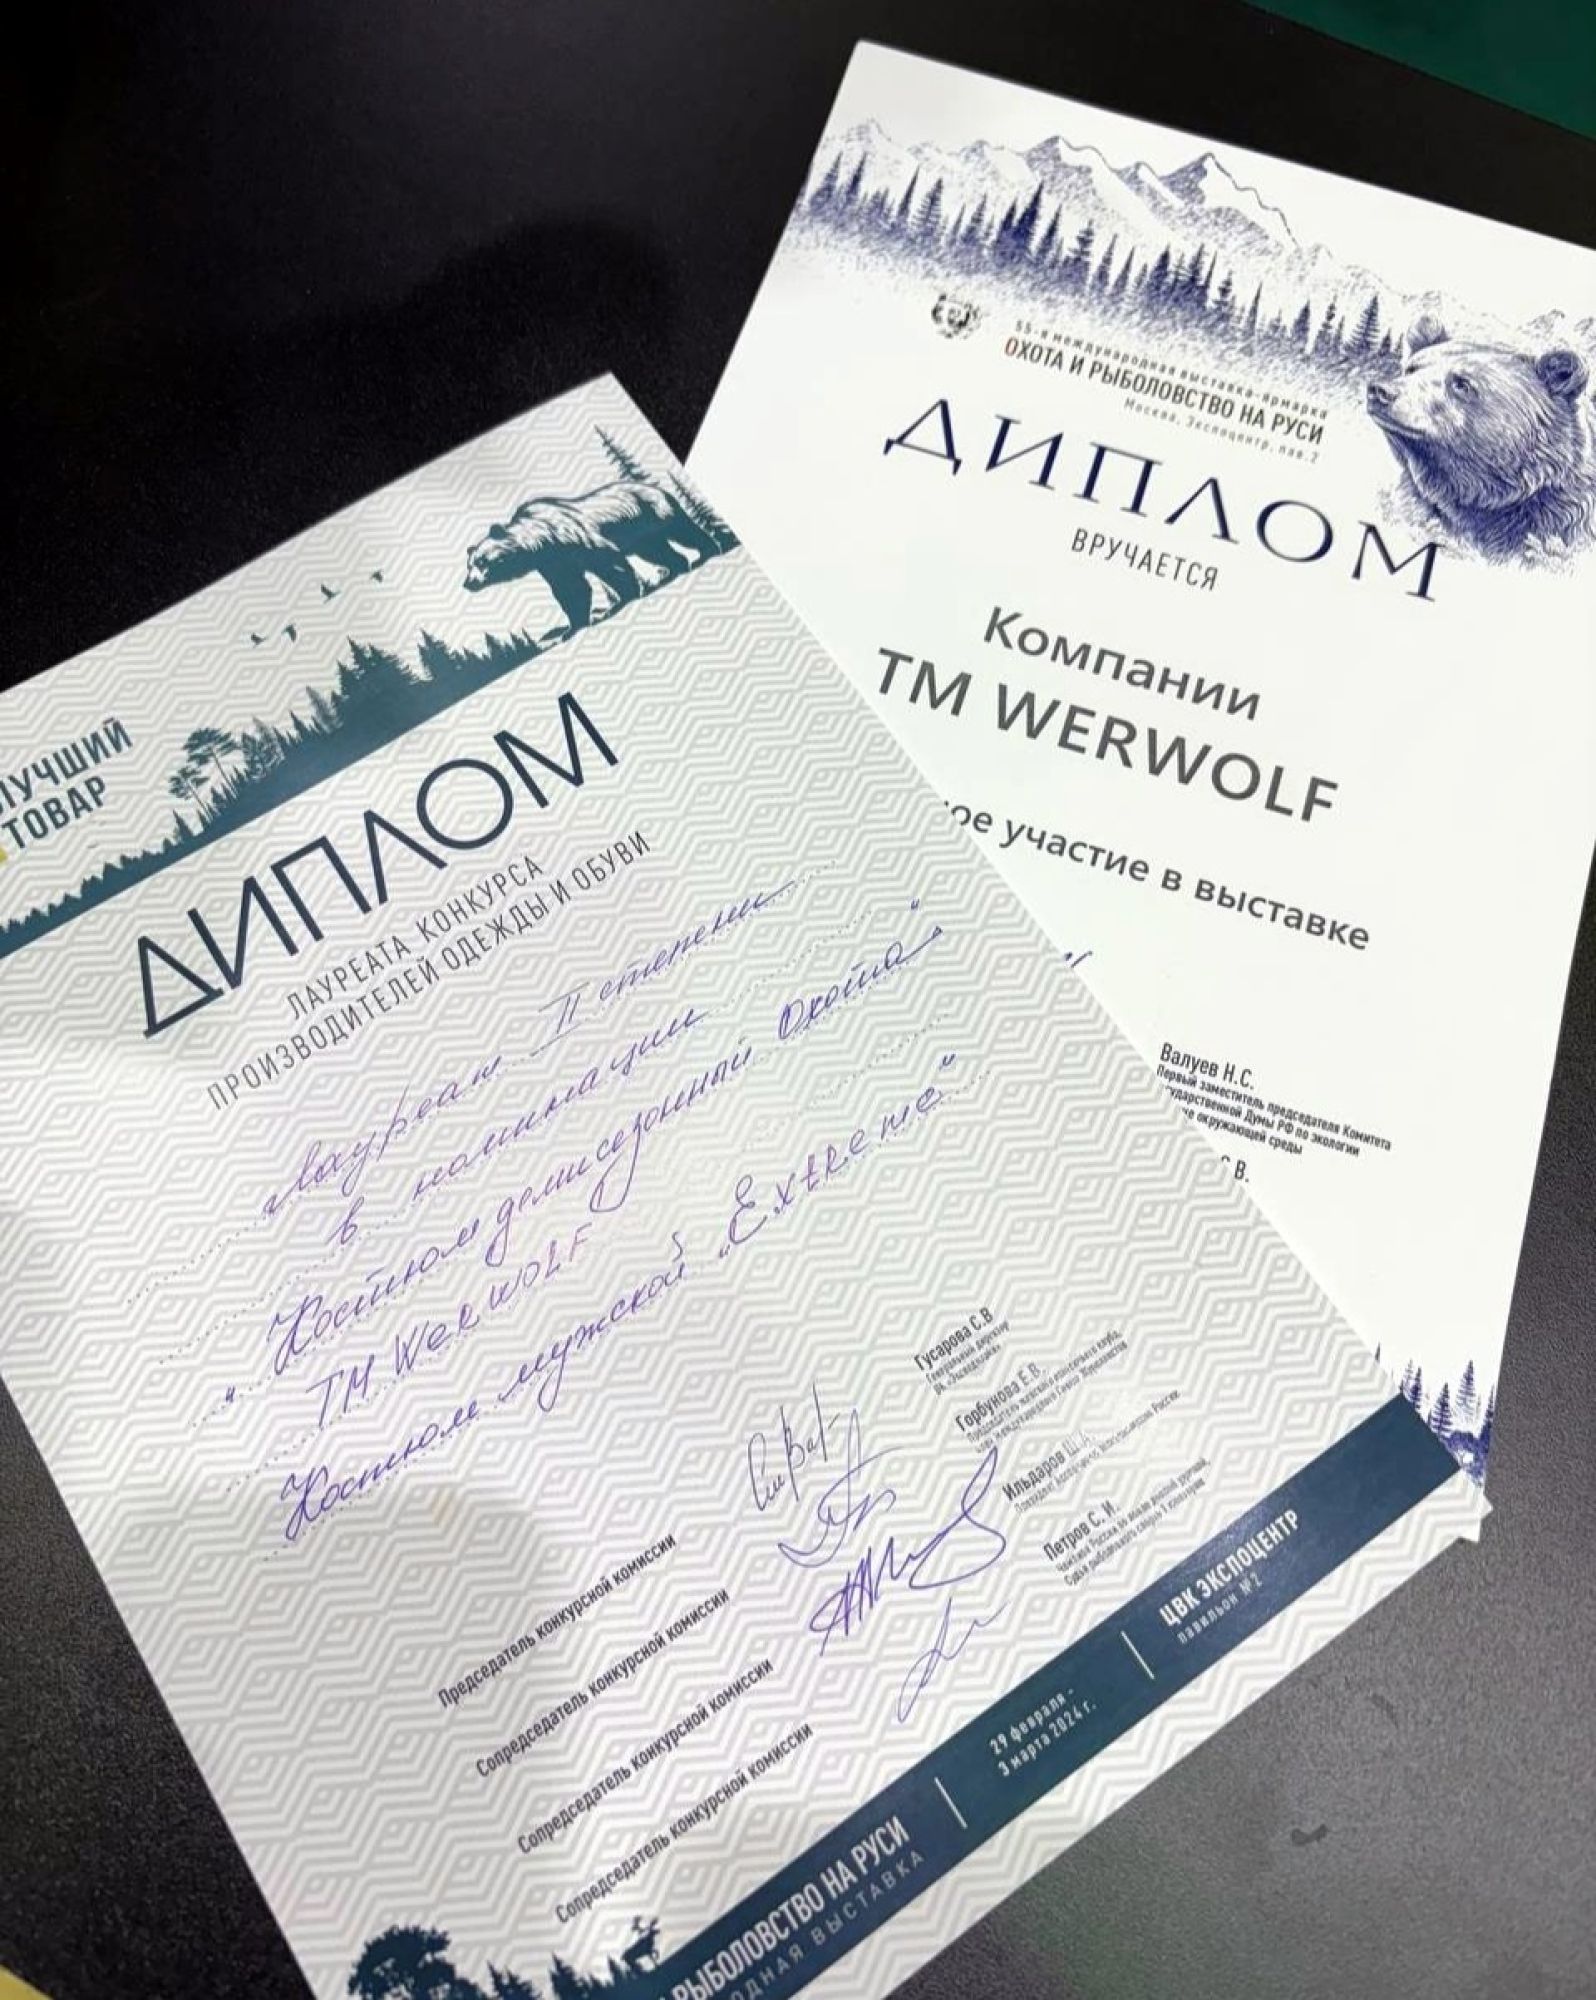 ЛУЧШИЙ
ТОВАР
ДИПЛОМ
ЛАУРЕАТА КОНКУРСА
ПРОИЗВОДИТЕЛЕЙ ОДЕЖДЫ И ОБУВИ
Лауреат II степени
в номинации
"Костюм демисезонный Охота"
ТМ WERWOLF
Костюм мужской "Extreme"
Председатель конкурсной комиссии
Сопредседатель конкурсной комиссии
Сопредседатель конкурсной комиссии
Сопредседатель конкурсной комиссии
Гусарова С.В
Генеральный директор
Горбунова Е.В.
Ильдаров
Петров С. И.
РЫБОЛОВСТВО НА РУСИ
ВЫСТАВКА
29 февраля -
3 марта 2024 г.
ЦВК ЭКСПОЦЕНТР
павильон №2
55-я международная выставка-ярмарка
ОХОТА И РЫБОЛОВСТВО НА РУСИ
Москва, Экспоцентр, пав.2
ДИПЛОМ
ВРУЧАЕТСЯ
Компании
ТМ WERWOLF
ое участие в выставке
Валуев Н.С.
Первый заместитель председателя Комитета
ударственной Думы РФ по экологии
не окружающей среды
В.